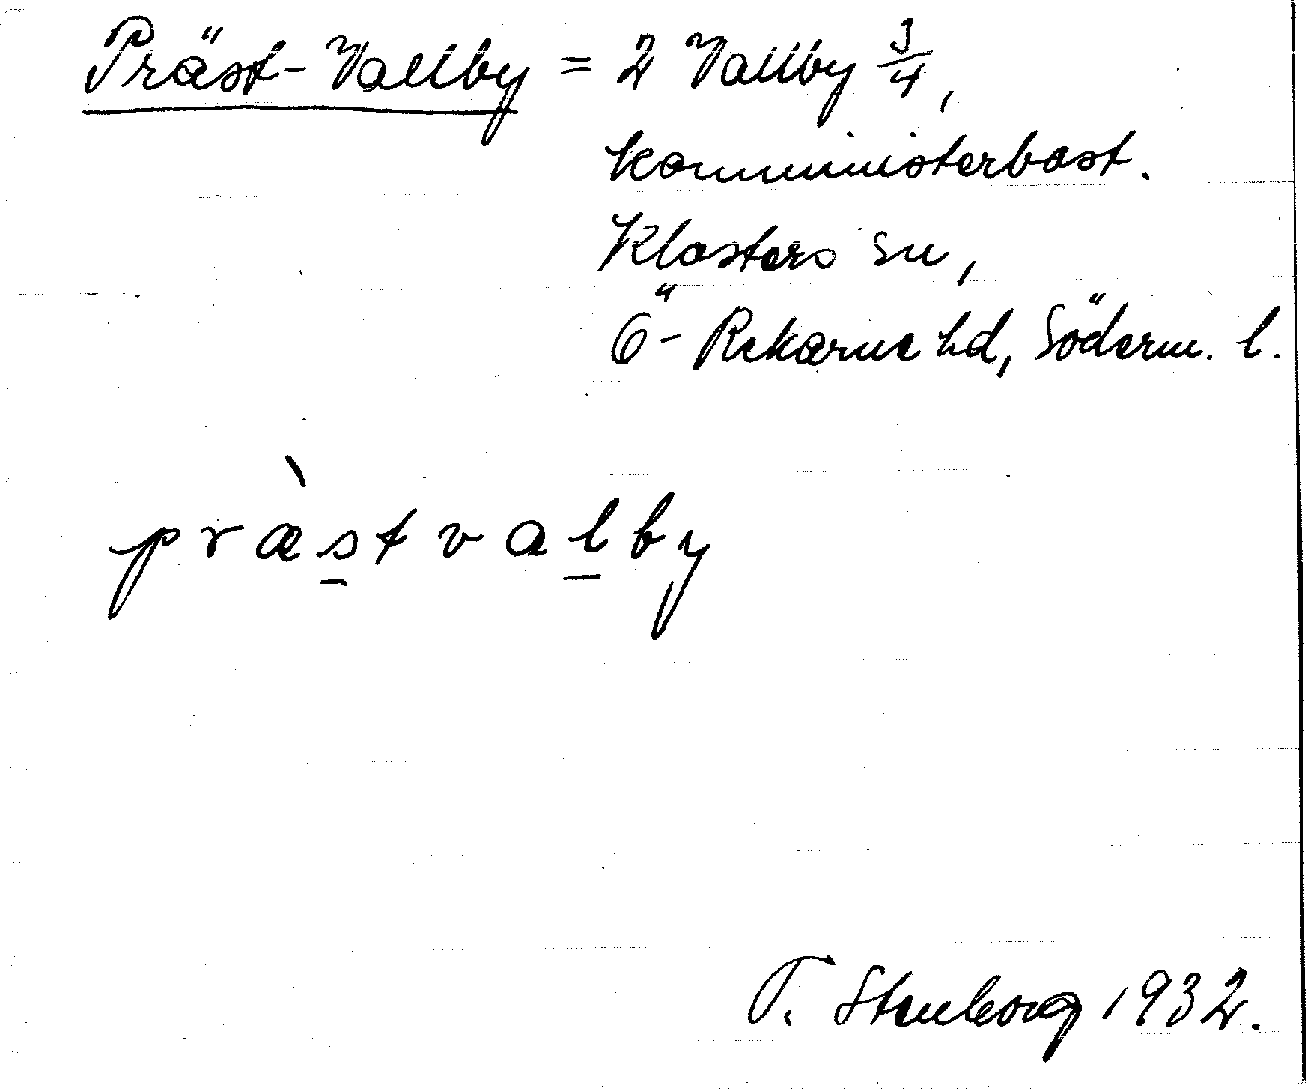 Präst-Vallby = 2 Vallby 3/4,
komministerbost.
Klosters sn,
Ö-Rekarne hd, Söderm. l.
præ̀stvalby
T. Stenborg 1932.